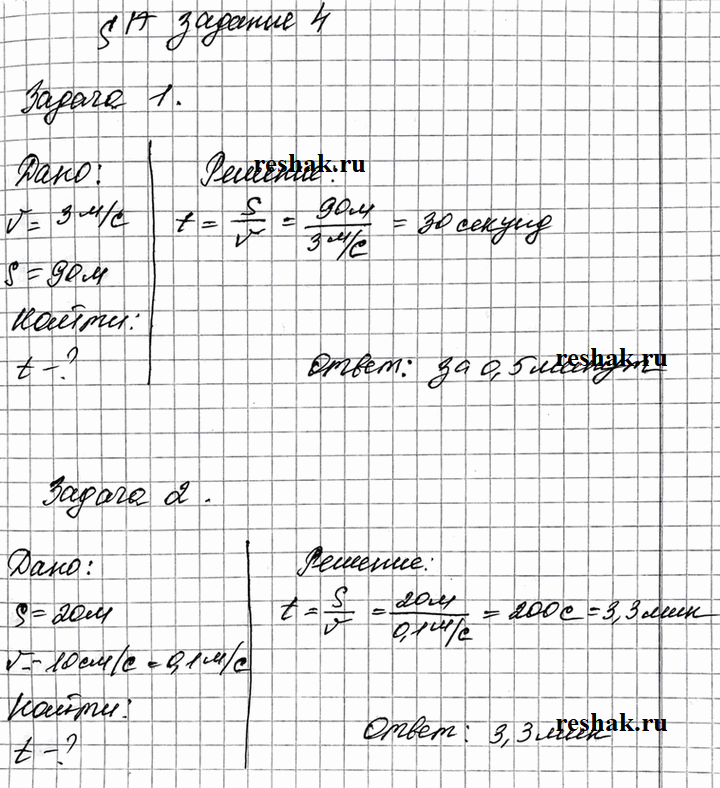 § 17 задание 4
Задача 1.
Дано:
v = 3 м/с
S = 90м
Найти:
t - ?
Решение:
reshak.ru
t = S/v = 90м/3 м/с = 30 секунд
Ответ: за 0,5 минут
reshak.ru
Задача 2.
Дано:
S = 20м
v = 10 см/с = 0,1 м/с
Найти:
t - ?
Решение:
t = S/v = 20м/0,1 м/с = 200 с = 3,3 мин
Ответ: 3,3 мин
reshak.ru